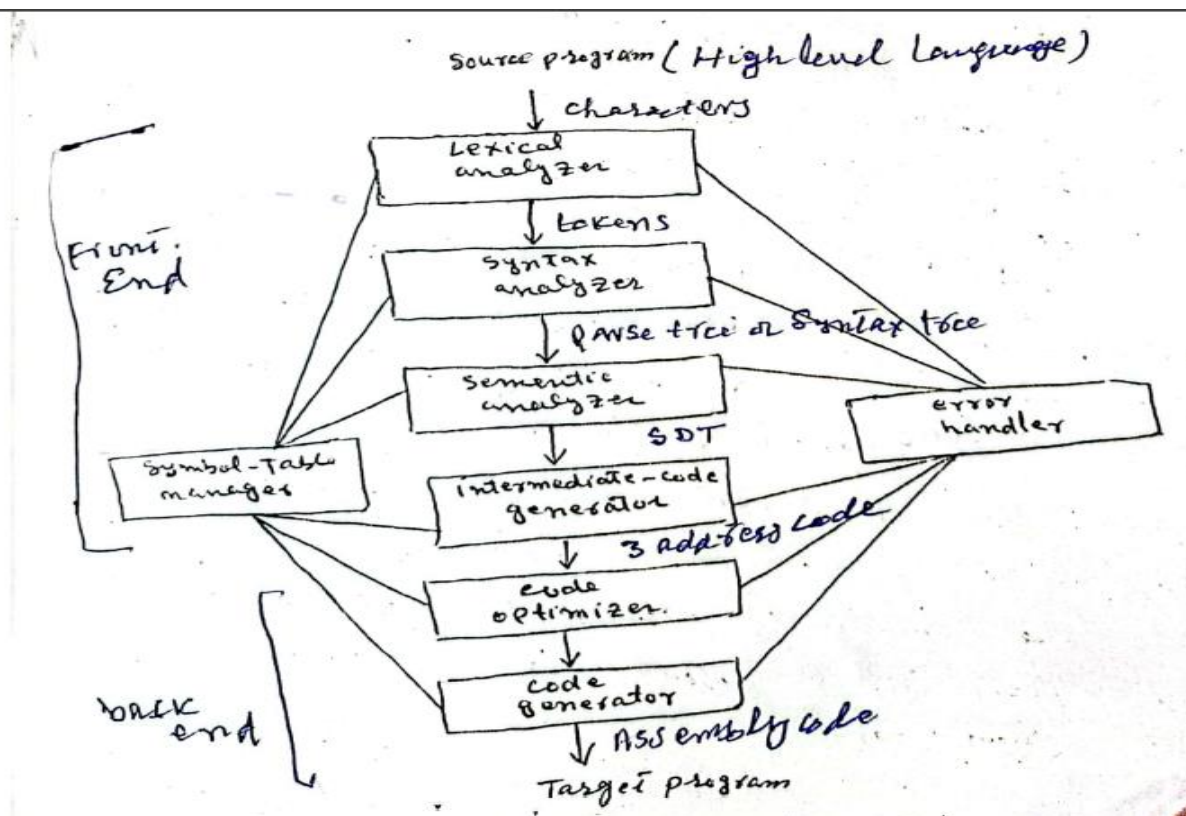 Source program (High level Language)
characters
Lexical
analyzer
tokens
Front.
End
Syntax
analyzer
parse tree or Syntax tree
Sementic
analyzer
error
handler
SDT
Symbol-Table
manager
intermediate-code
generator
3 address code
code
optimizer.
back
end
code
generator
Assembly code
Target program